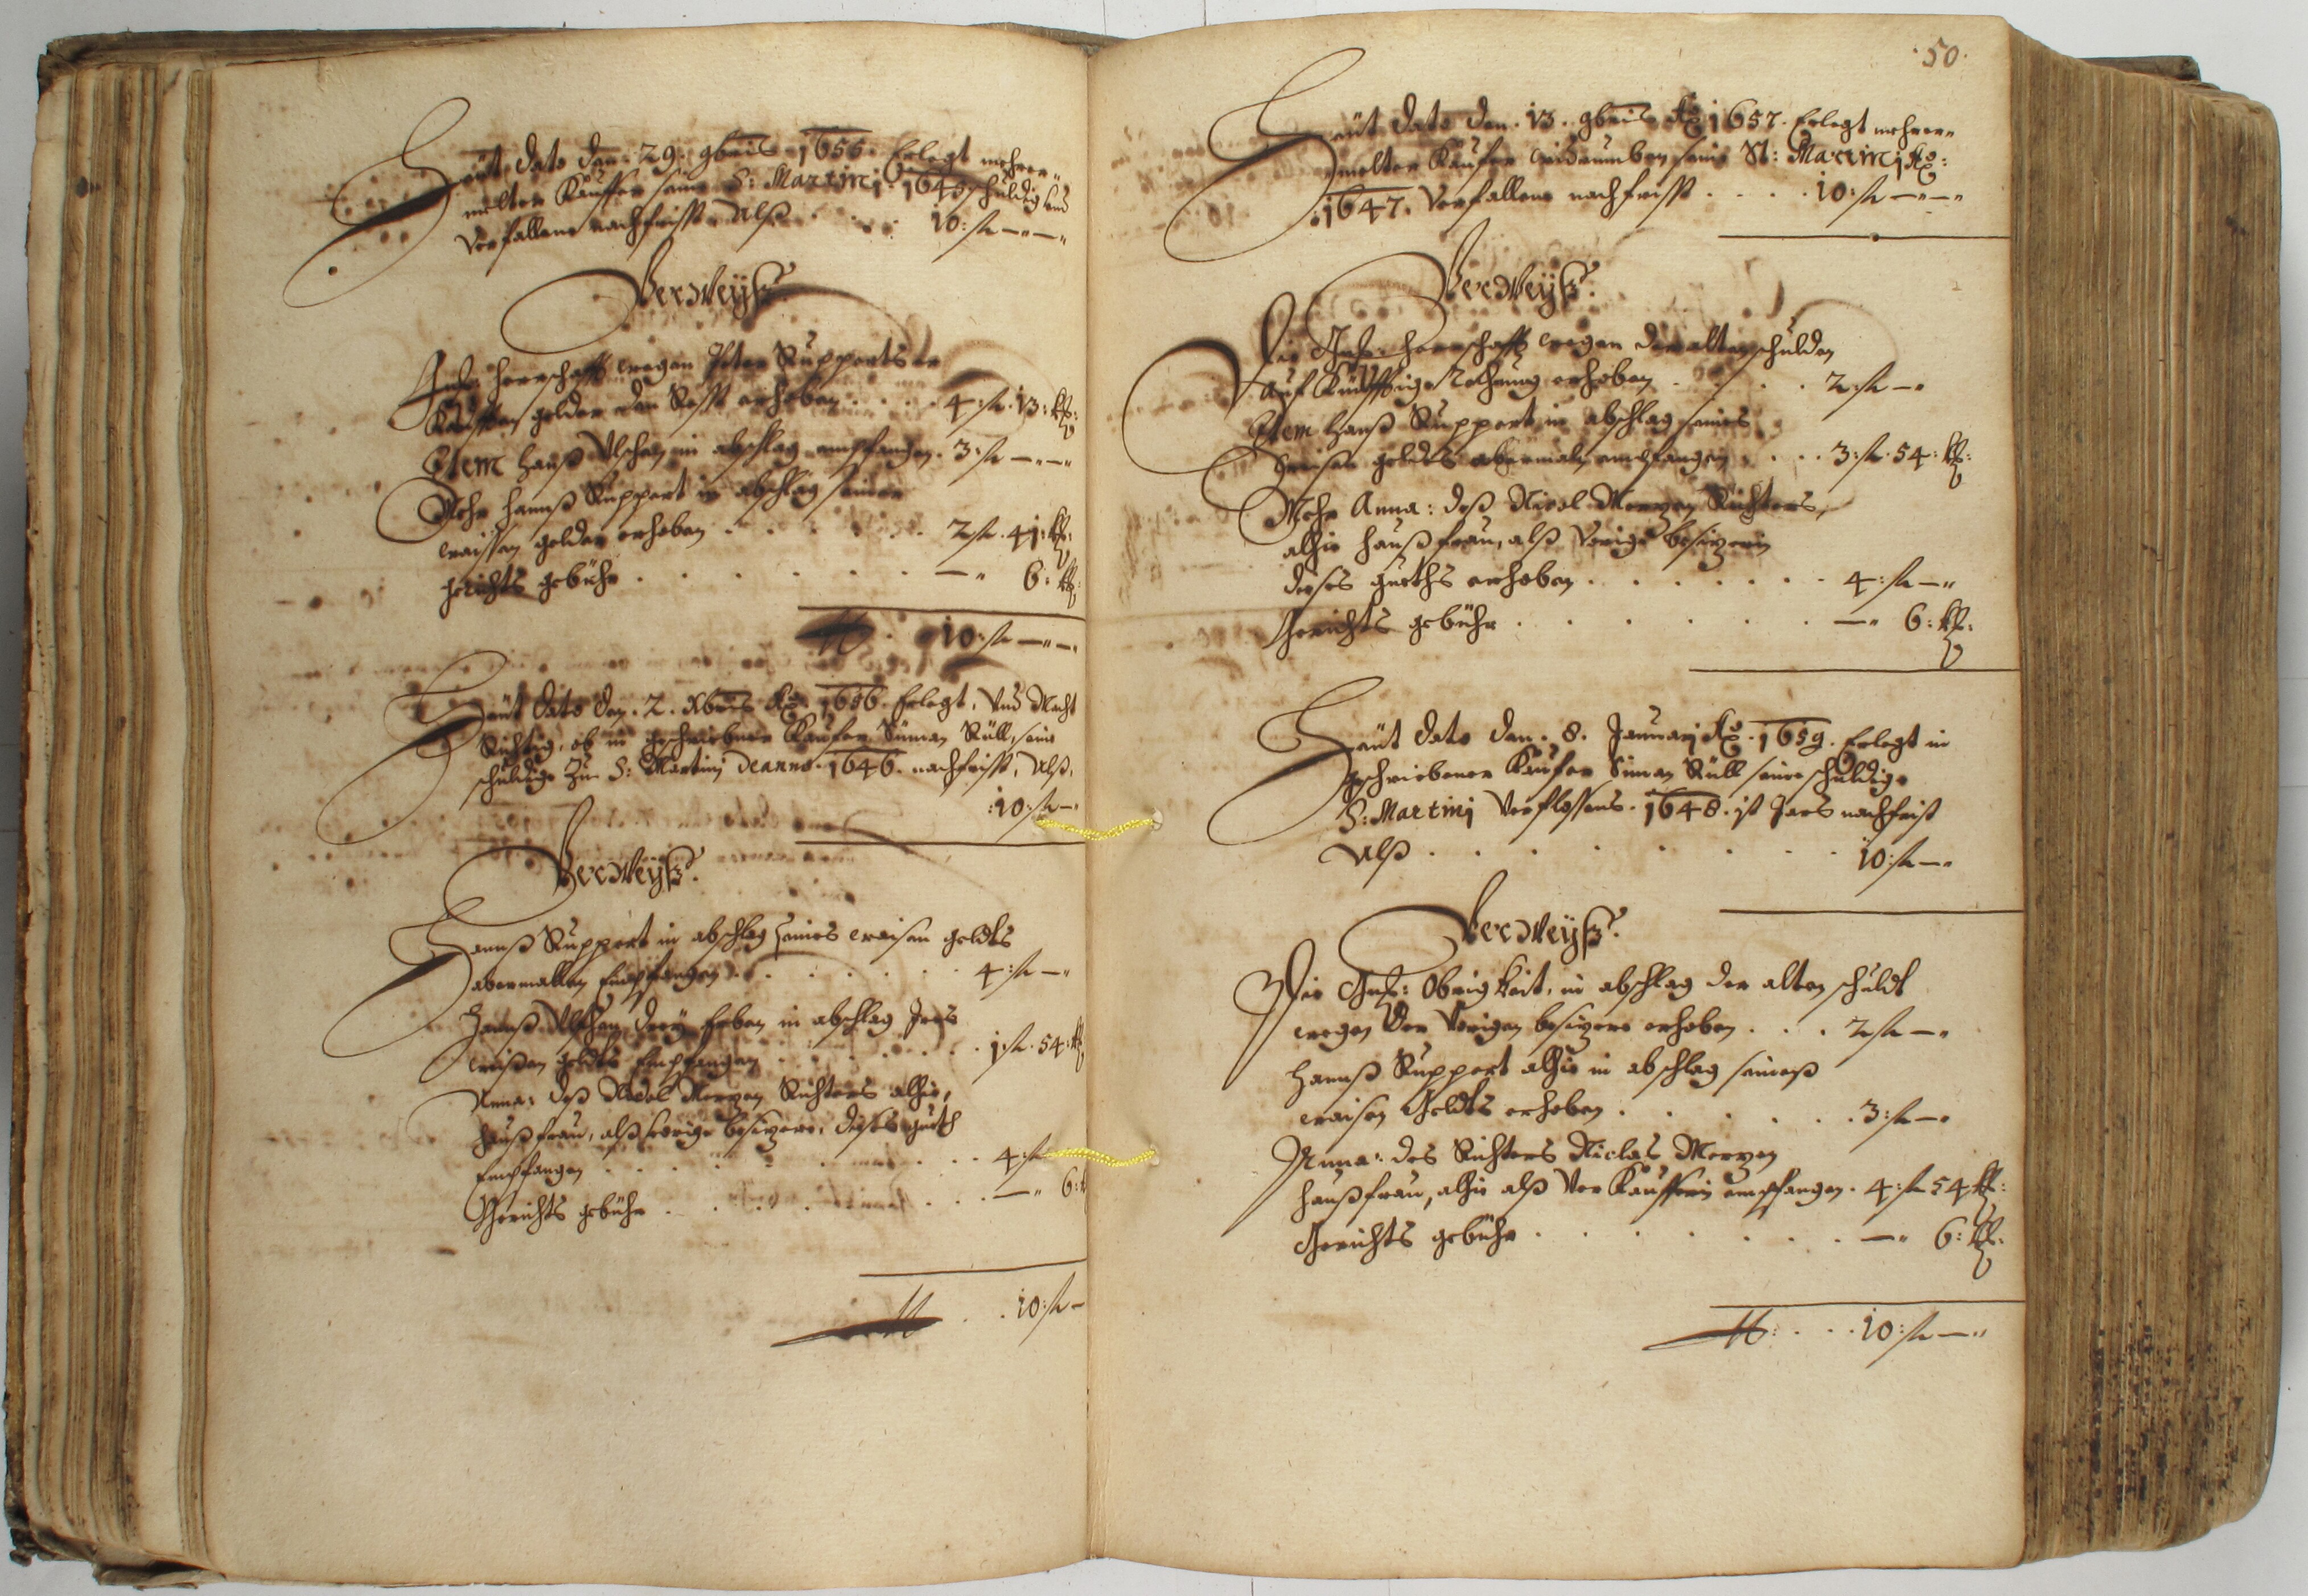 Heüt dato den. 29. 9bris 1655. Erlegt mehrer„
melter Kauffer seine S: Martinj. 1645 schuldig und
Verfallene nachfrist, Alß . . . . 10: fl —„—„
Verweÿß.
Gnd: herrschafft wegen Peter Rupperts er
Kaufften gelder den Rest erhoben . . . . 4: fl. 13: kr:
Item Hanß in abschlag empfangen. 3: fl —„—„
Mehr Hannß Ruppert in abschlag seiner
waissen gelder erhoben . . . . . 2 fl. 41: kr:
gerichts gebühr . . . . . . —„ 6: kr:
10: fl —„—„
Heüt dato den. 2. Xbris Ao. 1656. Erlegt, Und Macht
Richtig, ob in geschriebner Kaufer Simon Rüll, seine
schuldige Zu S: Martinj de anno. 1646. nachfrist, Alß,
:10: fl —„
Verweÿß.
Hannß Ruppert in abschlag seines waisen geldts
abermallen Empfangen . . . . . 4: fl —„
Hannß dreÿ Erben in abschlag Ires
waißen geldts Empfangen . . . . . 1: fl. 54: kr
Anna: deß Nicol Merzen Richters alhie,
haußfrau, alß vorige besizere, dieses gueth
Empfangen . . . . . . 4: fl
Gerichts gebühr . . . . . . —„ 6:
. . 10: fl —
·50·
Heüt dato den. 13. 9bris Ao 1657. Erlegt mehrer„
melter Kaufer widerumben seine St: Martinj Ao:
:1647. Verfallene nachfrist . . . . 10: fl —„—„
Verweÿß.
Die Gnd: herrschafft wegen der alten schulden
auf Künfftige Rechnung erhoben . . . . . 2: fl —„
Item Hanß Ruppert in abschlag seines
waisen geldts abermaln empfangen . . . 3: fl. 54: kr:
Mehr Anna: deß Nicol Merzen Richters,
alhie haußfrau, alß Vorige besizerin
dieses gueths erhoben . . . . . . . 4: fl —„
Gerichts gebühr . . . . . . —„ 6: kr:
Heüt dato den. 8. Januarj Ao. 1659. Erlegt in
geschriebener Kaufer Simon Rüll seine schuldige
S: Martinj Verflossens. 1648. ist Jars nachfrist
Alß . . . . . . . . 10: fl —„
Verweÿß.
Die Gnd: Obrigkeit, in abschlag der alten schuldt
wegen der Vorigen besizere erhoben . . . 2 fl —„
Hannß Ruppert alhie in abschlag seineß
waisen Geldts erhoben . . . . . . 3: fl —„
Anna: des Richters Niclas Merzen
haußfrau, alhie alß Verkaufferin empfangen. 4: fl 54 kr:
Gerichts gebühr . . . . . . . —„ 6: kr:
. . . 10: fl —„